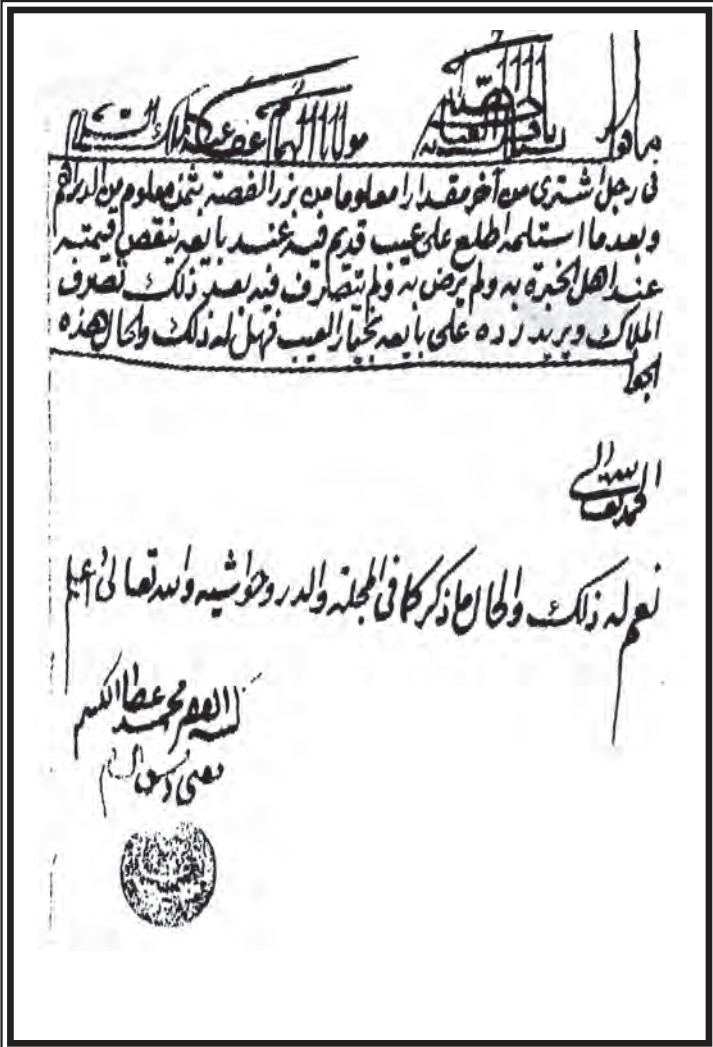 مولانا الهمام
في رجل اشترى من آخر مقدارا معلوما من بزر الفصة بثمن معلوم من الدراهم
وبعد ما استلمه اطلع على عيب قديم فيه عند بايعه ينقص قيمته
عند اهل الخبرة به ولم يرض به ولم يتصرف فيه بعد ذلك تصرف
الملاك ويريد رده على بايعه بخيار العيب فهل له ذلك والحال هذه
الحمد لله تعالى
نعم له ذلك والحال ما ذكر كما في المجلة والدر وحواشيه والله تعالى اعلم
كتبه الفقير محمد عطا الكسم
مفتي دمشق الشام